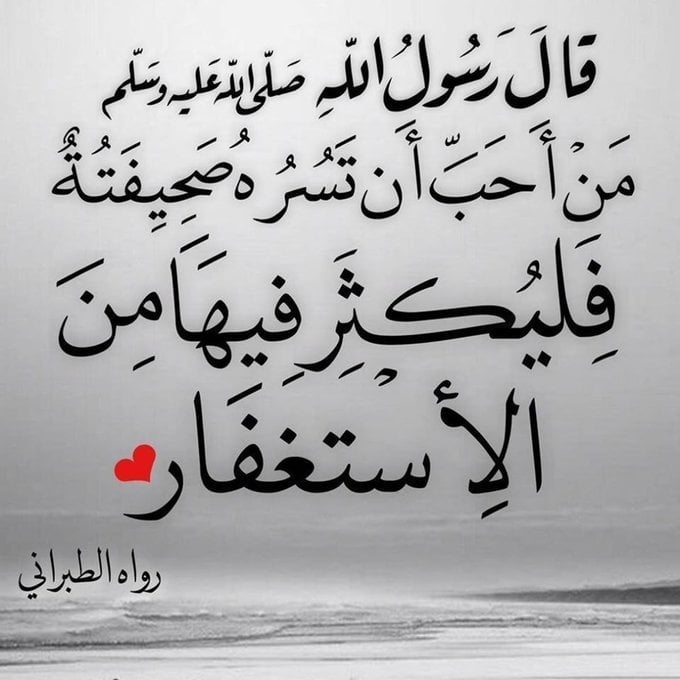 قَالَ رَسُولُ اللّٰهِ صَلّى اللّٰه عَليه وسَلّم
مَنْ أَحَبَّ أَن تَسُرُهُ صَحِيِفَتُةٌ
فَِليُكثِرَ فِيهَا مِنَ
الِأسْتِغفَار
رواه الطبراني